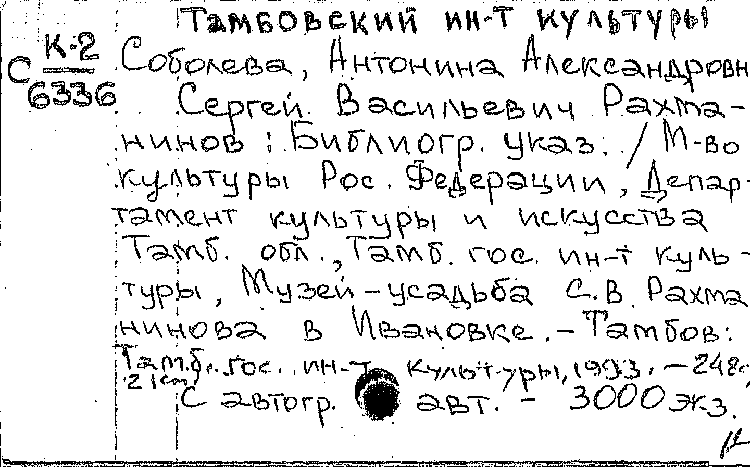 Тамбовский ин-т культуры
К-2
С 6336
Соболева, Антонина Александровн
Сергей Васильевич Рахма-
нинов : Библиогр. указ. / М-во
культуры Рос. Федерации, Депар-
тамент культуры и искусства
Тамб. обл., Тамб. гос. ин-т куль-
туры, Музей-усадьба С.В. Рахма
нинова в Ивановке. - Тамбов:
Тамб. гос. ин-т культуры, 1993. - 248с
21 см
С автогр. авт. - 3000 экз.